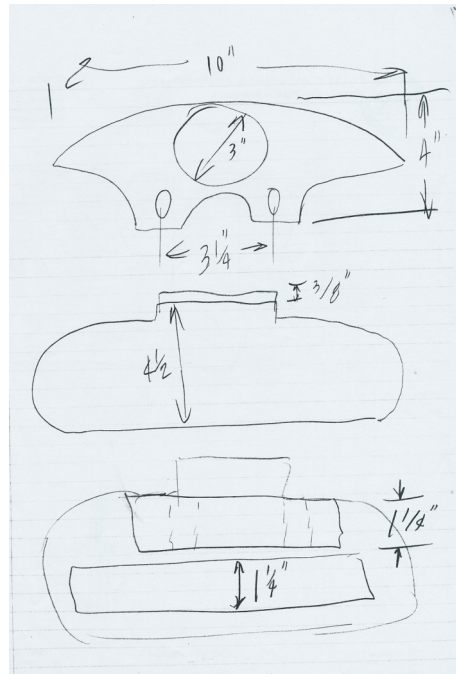 10"
3"
4"
3 1/4"
3/8"
4 1/2
1 1/4"
1 1/4"